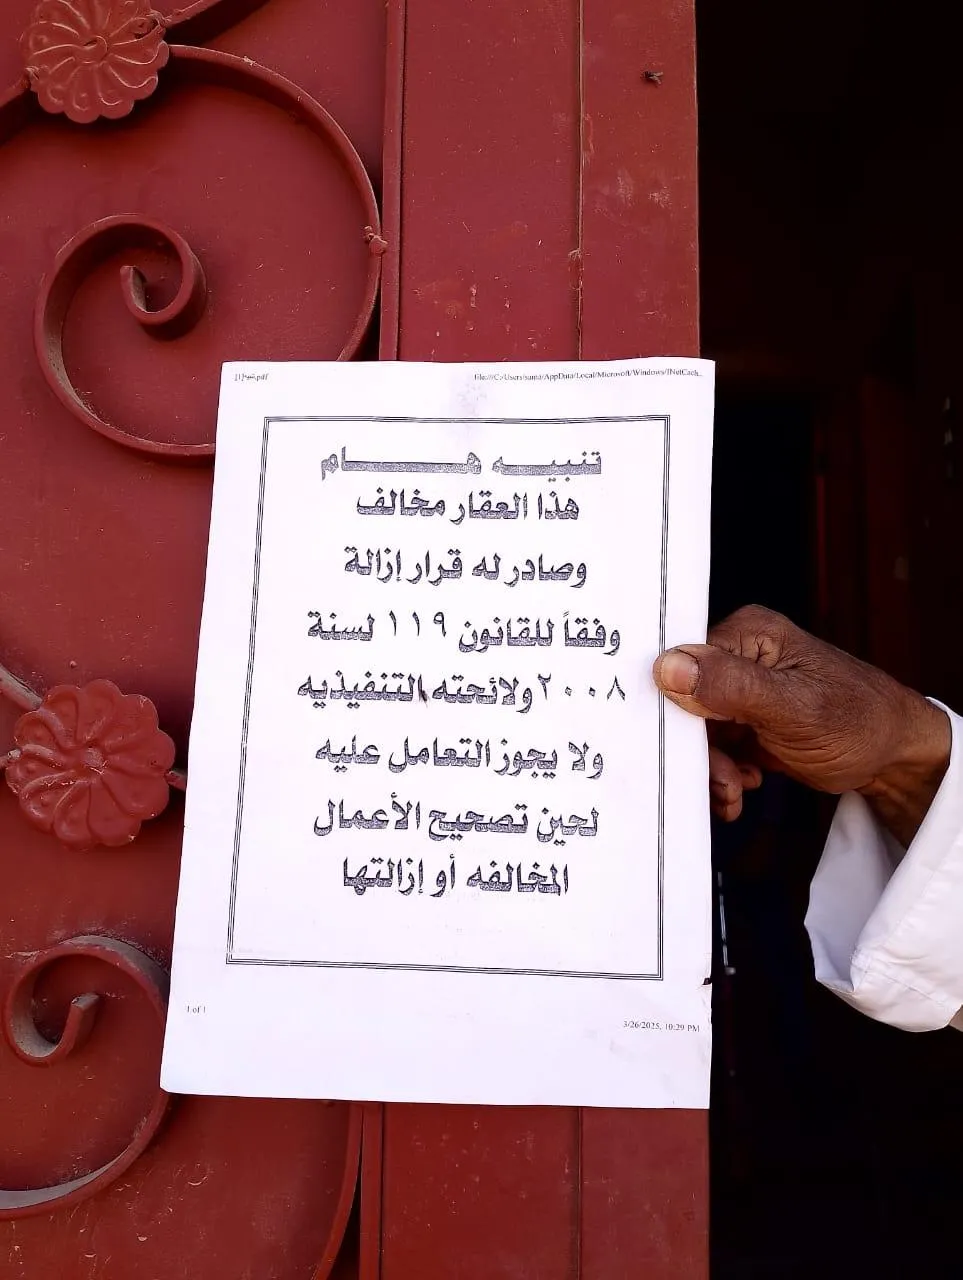 تنبيه[1].pdf
file:///C:/Users/sama/AppData/Local/Microsoft/Windows/INetCach...
تنبيـــه هـــــــــام
هذا العقار مخالف
وصادر له قرار إزالة
وفقاً للقانون ١١٩ لسنة
٢٠٠٨ ولائحته التنفيذيه
ولا يجوز التعامل عليه
لحين تصحيح الأعمال
المخالفه أو إزالتها
1 of 1
3/26/2025, 10:29 PM